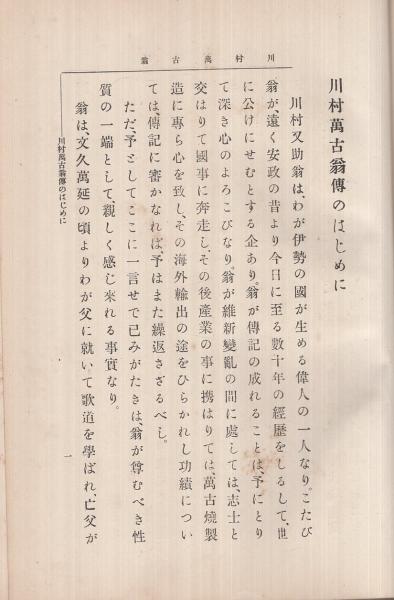 翁古萬村川
川村萬古翁傳のはじめに
川村又助翁は、わが伊勢の國が生める偉人の一人なり。こたび
翁が、遠く安政の昔より今日に至る數十年の經歷をしるして、世
に公けにせむとする企あり。翁が傳記の成れることは、予にとり
て深き心のよろこびなり。翁が維新變亂の間に處しては、志士と
交はりて國事に奔走し、その後產業の事に携はりては、萬古燒製
造に專ら心を致し、その海外輸出の途をひらかれし功績につい
ては、傳記に審かなれば、予はまた繰返さざるべし。
ただ、予としてここに一言せで已みがたきは、翁が尊むべき性
質の一端として、親しく感じ來れる事實なり。
翁は、文久萬延の頃よりわが父に就いて歌道を學ばれ、亡父が
川村萬古翁傳のはじめに
一